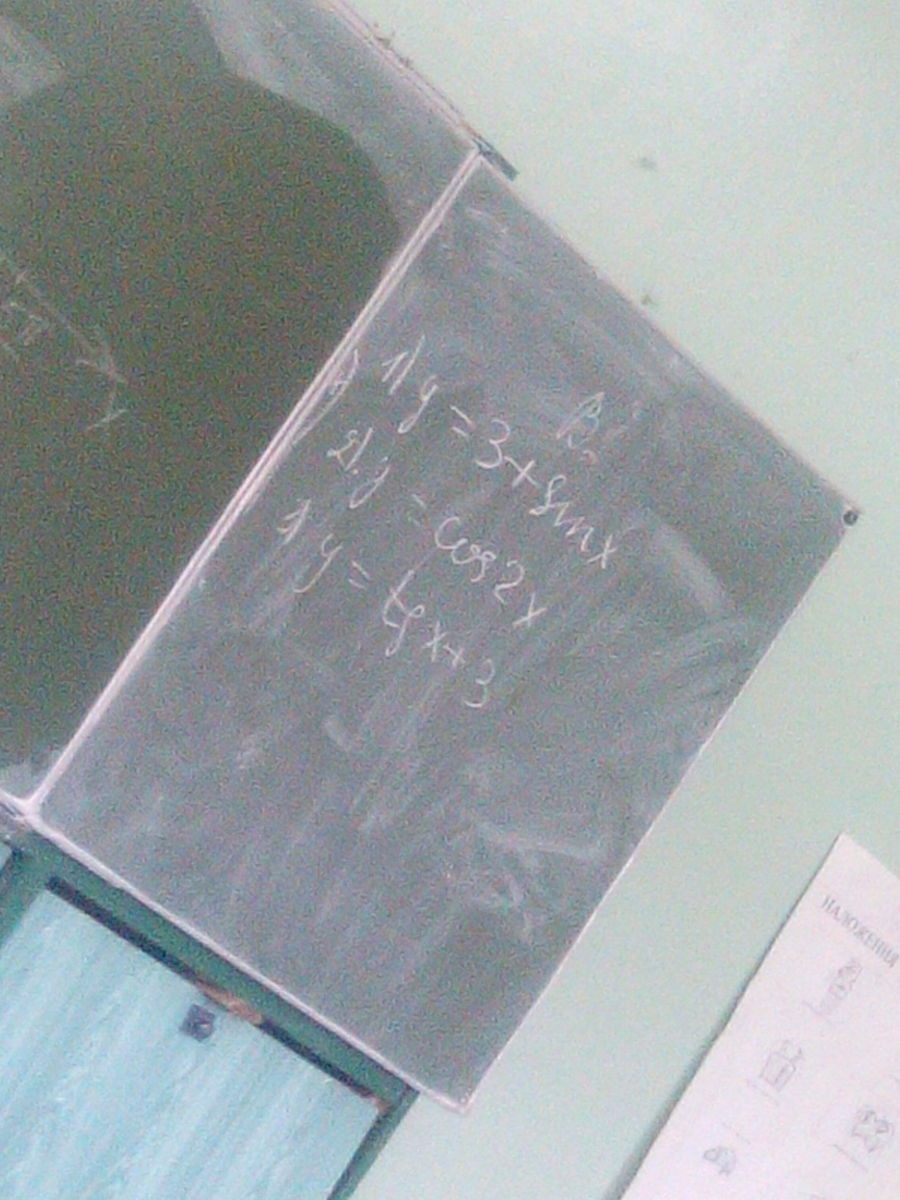 В
1) y = 3 + sin x
2). y = cos 2x
y = tg x + 3
НАЛОЖЕНИЯ